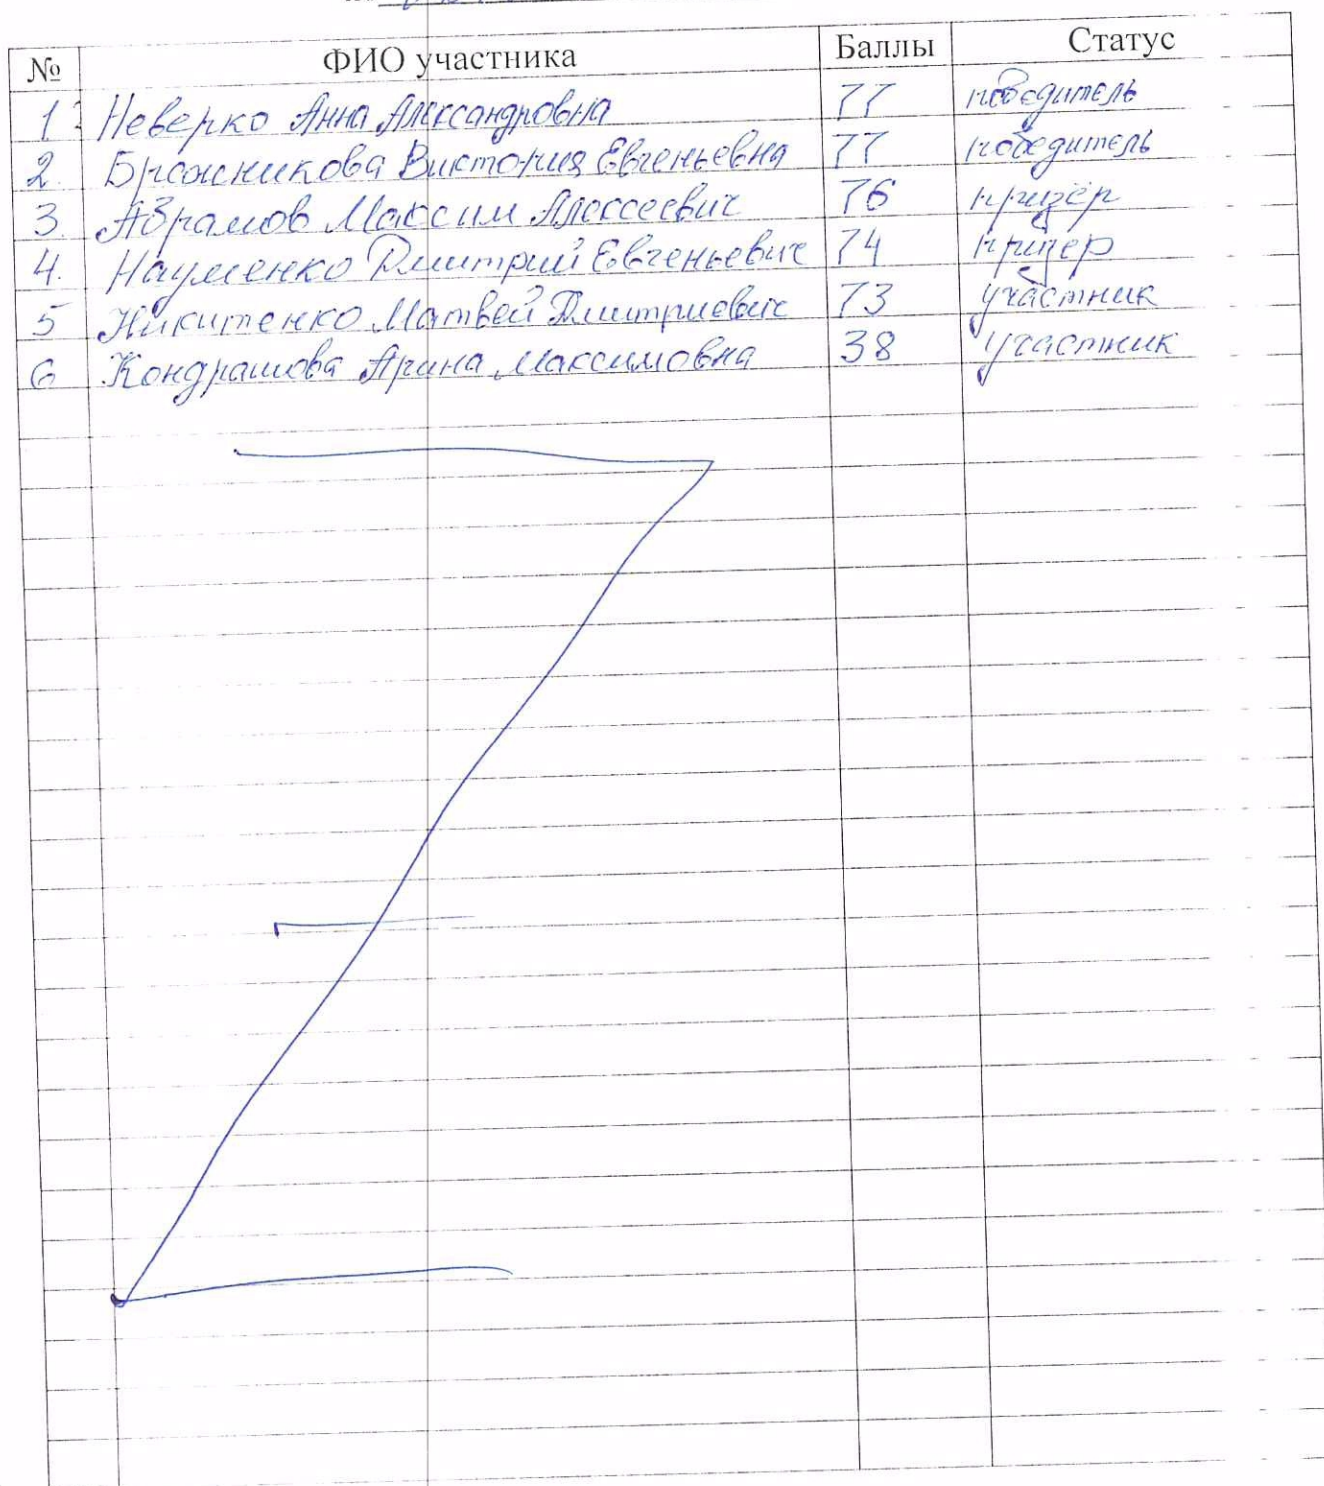 № ФИО участника Баллы Статус
1. Неверко Анна Александровна 77 победитель
2. Бражникова Виктория Евгеньевна 77 победитель
3. Абрамов Максим Алексеевич 76 призёр
4. Науменко Дмитрий Евгеньевич 74 призер
5 Никитенко Матвей Дмитриевич 73 участник
6 Кондрашова Арина Максимовна 38 участник